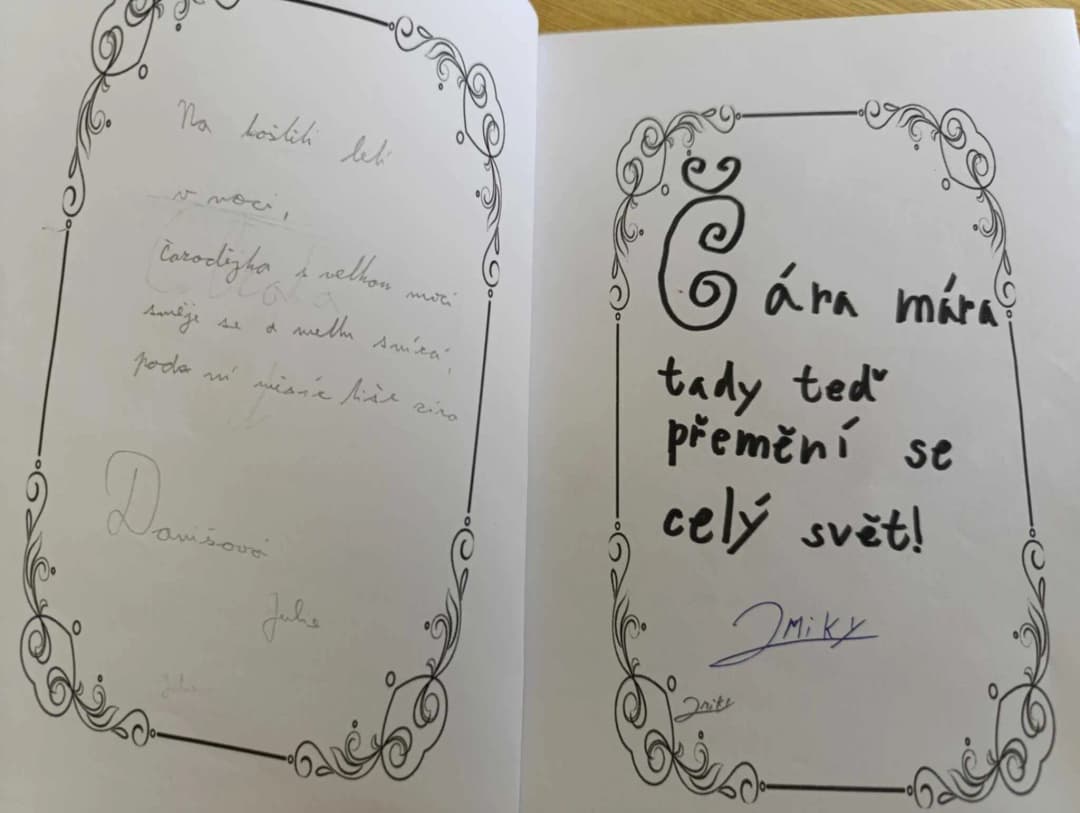 Na koštěti letí
v noci,
čarodějka s velkou mocí
směje se a metlu svírá,
pod ní měsíc tiše zírá
Danišová
Julie
Julie
Čára mára
tady teď
přemění se
celý svět!
JMIKY
Jmiky